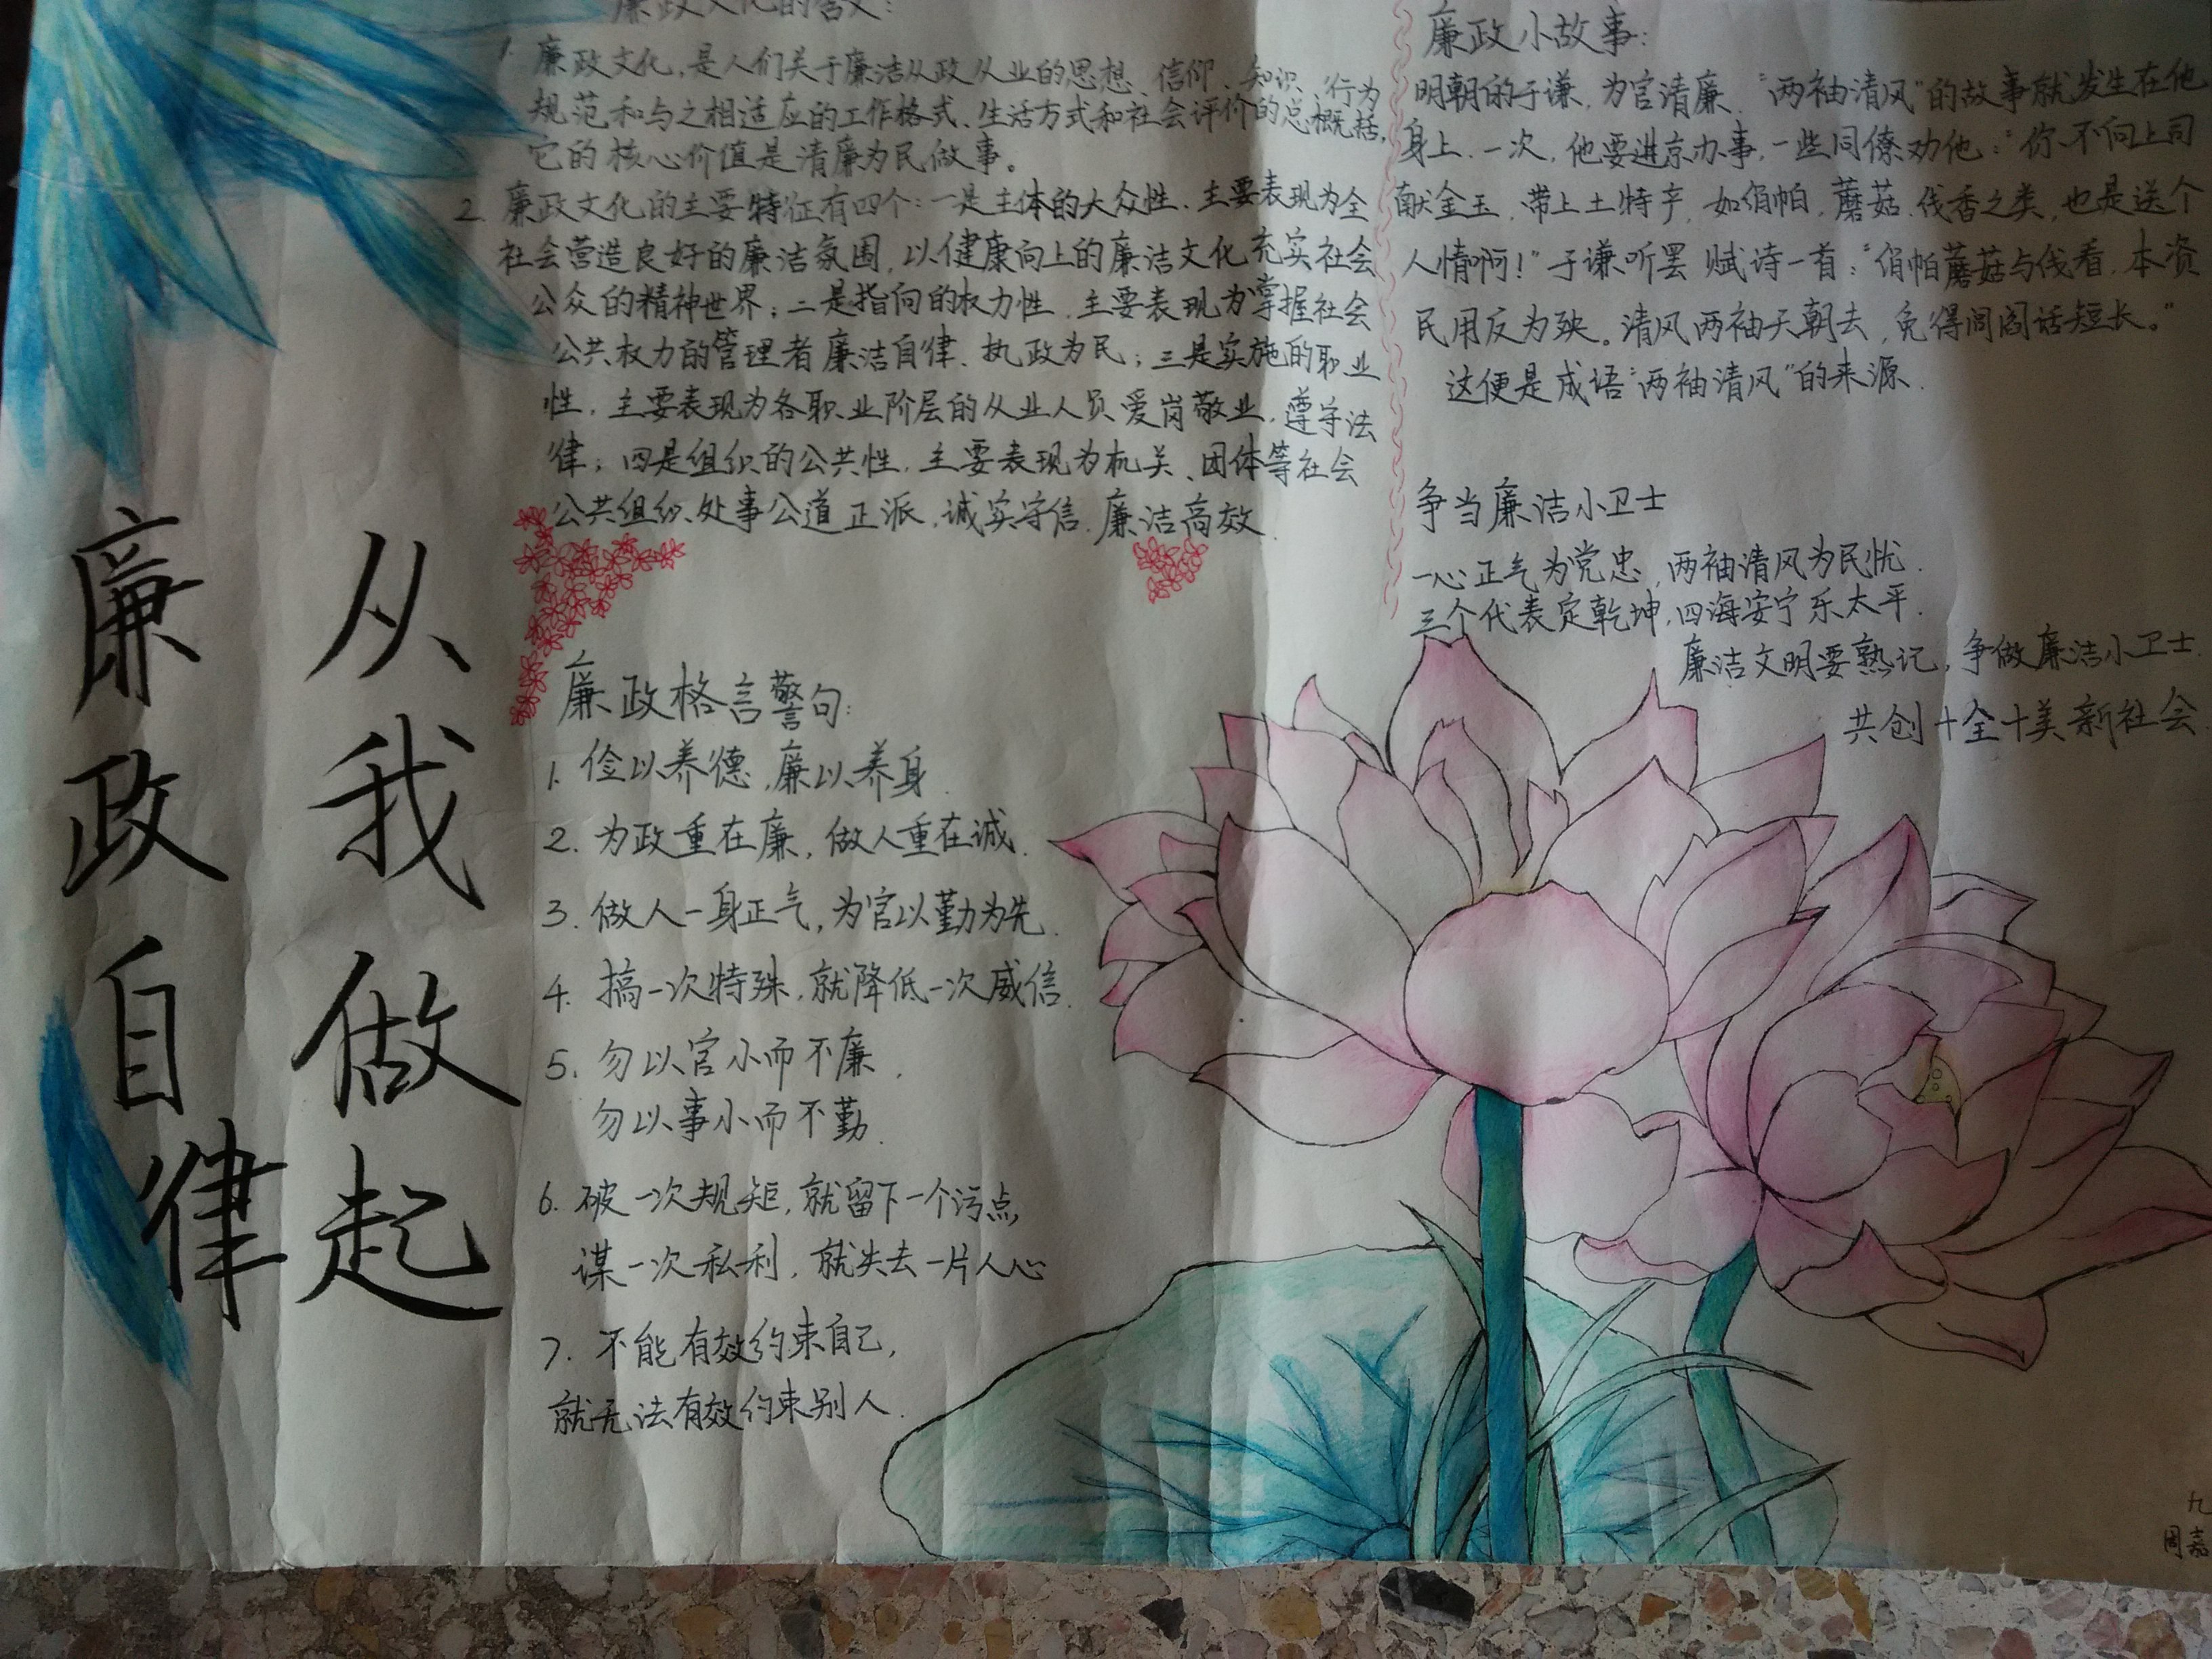 廉政自律
从我做起
廉政文化的含义：
1. 廉政文化，是人们关于廉洁从政从业的思想、信仰、知识、行为
规范和与之相适应的工作格式、生活方式和社会评价的总概括，
它的核心价值是清廉为民做事。
2. 廉政文化的主要特征有四个：一是主体的大众性，主要表现为全
社会营造良好的廉洁氛围，以健康向上的廉洁文化充实社会
公众的精神世界；二是指向的权力性，主要表现为掌握社会
公共权力的管理者廉洁自律、执政为民；三是实施的职业
性，主要表现为各职业阶层的从业人员爱岗敬业，遵守法
律；四是组织的公共性，主要表现为机关、团体等社会
公共组织处事公道正派，诚实守信，廉洁高效
廉政格言警句：
1. 俭以养德，廉以养身．
2. 为政重在廉，做人重在诚．
3. 做人一身正气，为官以勤为先．
4. 搞一次特殊，就降低一次威信．
5. 勿以官小而不廉，
勿以事小而不勤．
6. 破一次规矩，就留下一个污点，
谋一次私利，就失去一片人心
7. 不能有效约束自己，
就无法有效约束别人．
廉政小故事：
明朝的于谦，为官清廉，“两袖清风”的故事就发生在他
身上．一次，他要进京办事，一些同僚劝他：“你不向上司
献金玉，带上土特产，如绢帕，蘑菇、线香之类，也是送个
人情啊！”于谦听罢 赋诗一首：“绢帕蘑菇与线香，本资
民用反为殃。清风两袖天朝去，免得闾阎话短长。”
这便是成语“两袖清风”的来源．
争当廉洁小卫士
一心正气为党忠，两袖清风为民忧．
三个代表定乾坤，四海安宁乐太平．
廉洁文明要熟记，争做廉洁小卫士．
共创十全十美新社会．
九
周嘉